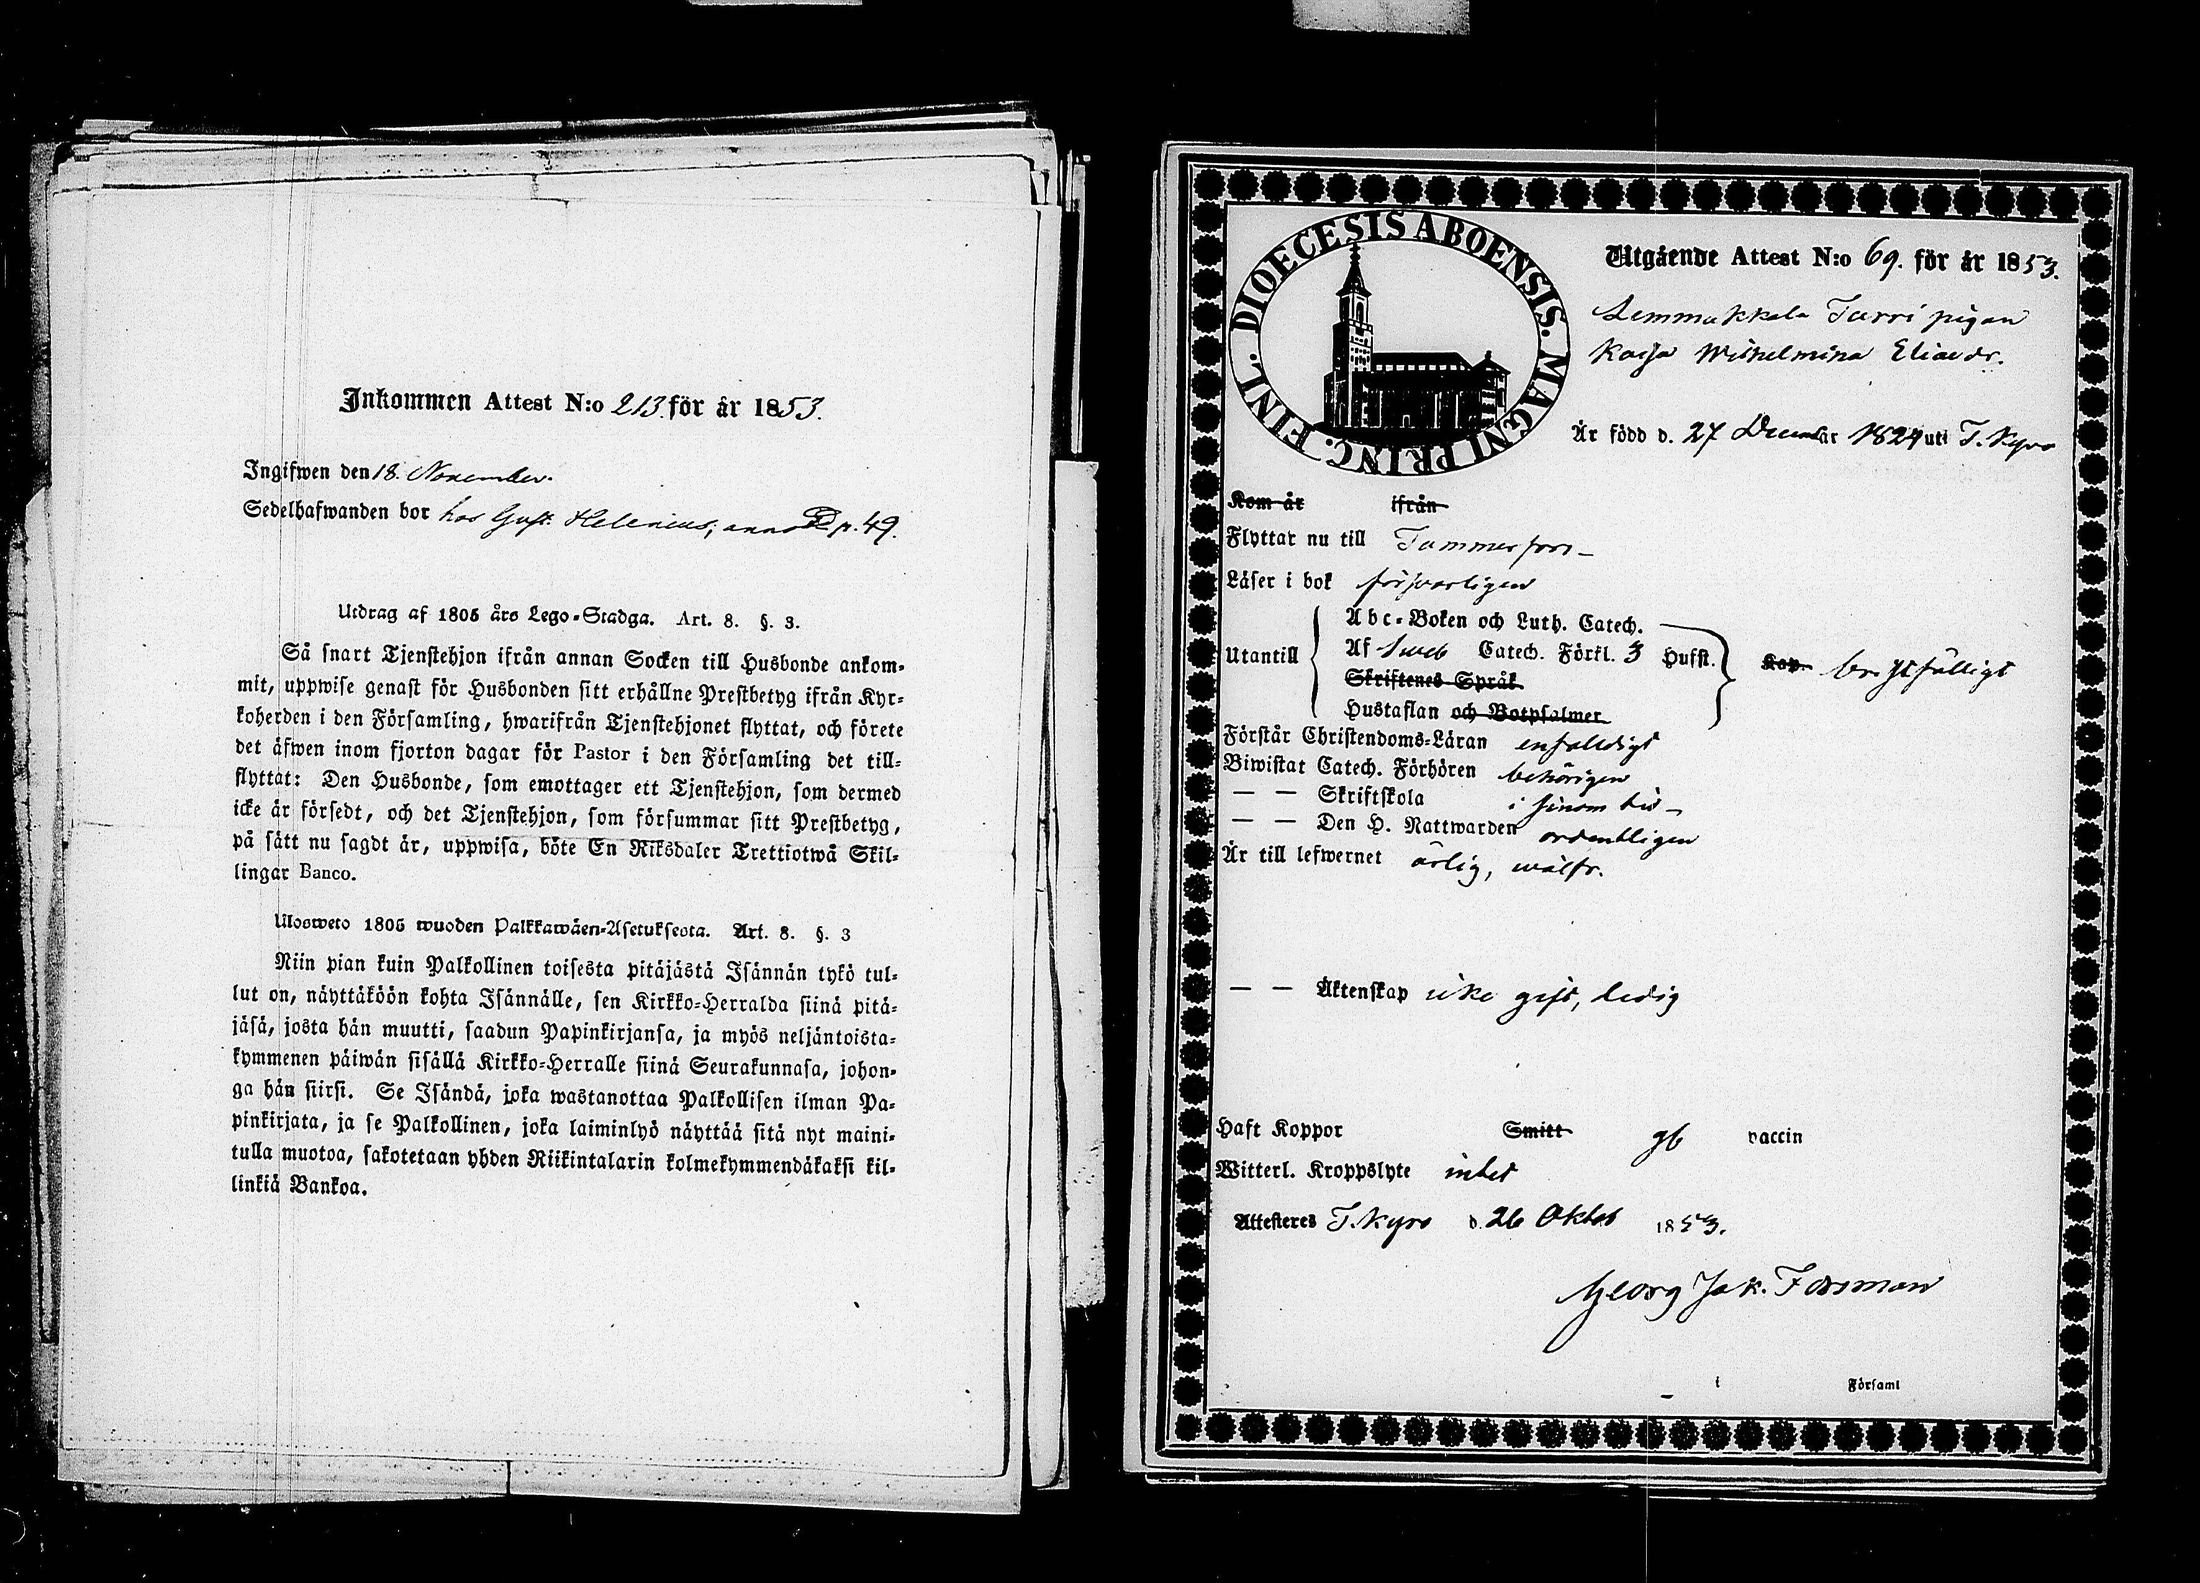 Inkommen Attest N:o 213. för år 1853.
Ingifwen den 18. November.
Sedelhafwanden bor hos Gust. Helenius, p. 49.
Utdrag af 1805 års Lego-Stadga. Art. 8. §. 3.
Så snart Tjenstehjon ifrån annan Socken till Husbonde ankom-
mit, uppwise genast för Husbonden sitt erhållne Prestbetyg ifrån Kyr-
koherden i den Församling, hwarifrån Tjenstehjonet flyttat, och förete
det äfwen inom fjorton dagar för Pastor i den Församling det till-
flyttat: Den Husbonde, som emottager ett Tjenstehjon, som dermed
icke är försedt, och det Tjenstehjon, som försummar sitt Prestbetyg,
på sätt nu sagdt är, uppwisa, böte En Riksdaler Trettiotwå Skil-
lingar Banco.
Ulosweto 1805 wuoden Palkkawäen-Asetuksesta. Art. 8. §. 3
Niin pian kuin Palkollinen toisesta pitäjästä Isännän tykö tul-
lut on, näyttäköön kohta Isännälle, sen Kirkko-Herralda siinä pitä-
jäsä, josta hän muutti, saadun Papinkirjansa, ja myös neljäntoista-
kymmenen päiwän sisällä Kirkko-Herralle siinä Seurakunnasa, johon-
ga hän siirsi. Se Isändä, joka wastanottaa Palkollisen ilman Pa-
pinkirjata, ja se Palkollinen, joka laiminlyö näyttää sitä nyt maini-
tulla muotoa, sakotetaan yhden Riikintalarin kolmekymmendäkaksi kil-
linkiä Bankoa.
DIOECESIS ABOENSIS. MAGNI PRINC. FINL.
Utgående Attest N:o 69. för år 1853.
Lemmakkala Turri pigan
Kaisa Wilhelmina Eliaedr.
Är född d. 27 December 1824 uti T. Kyro
Kom år ifrån
Flyttar nu till Tammerfors
Läser i bok försvarligen
Utantill
Abc-Boken och Luth. Catech.
Af Sweb Catech. Förkl. 3 Hufst.
Skriftenes Språk
Hustaflan och Botpsalmer
Kap. bristfälligt
Förstår Christendoms-Läran enfaldigt
Biwistat Catech. Förhören behörigen
— — Skriftskola i sinom tid
— — Den H. Nattwarden ordentligen
Är till lefwernet ärlig, wälfr.
— — Äktenskap icke gift, ledig
Haft Koppor Smitt gb vaccin
Witterl. Kroppslyte intet
Attesteres T. Kyro d. 26 Oktob 1853.
Georg Jak. Forsman
i Församl